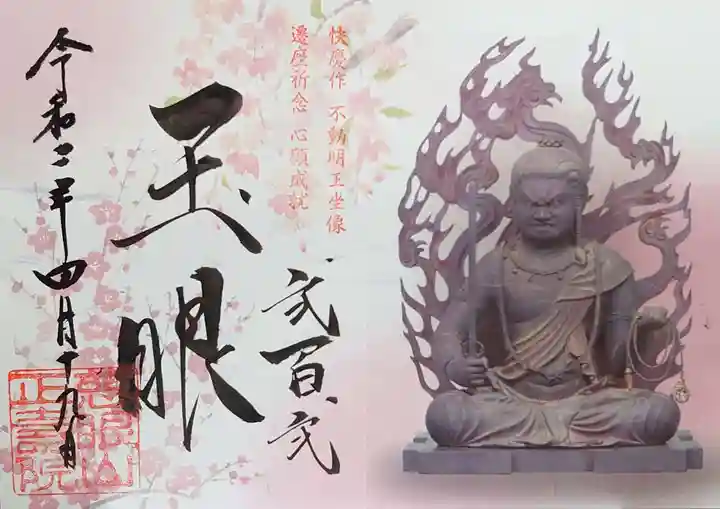 快慶作 不動明王坐像
遷座祈念 心願成就
弐百弐
玉眼
令和二年四月十九日
慈眼山
正寿院